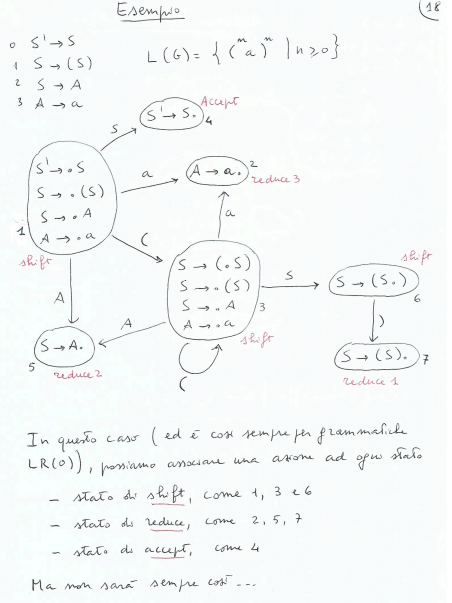 Esempio
18
0 S' → S
1 S → (S)
2 S → A
3 A → a
L(G) = { (ⁿ a )ⁿ | n ≥ 0 }
S
S' → S.
Accept
4
S' → .S
S → .(S)
S → .A
A → .a
1
shift
a
A → a.
2
reduce 3
(
a
S → (.S)
S → .(S)
S → .A
A → .a
3
shift
(
S
S → (S.)
shift
6
)
S → (S).
7
reduce 1
A
A
S → A.
5
reduce 2
In questo caso (ed è così sempre per grammatiche
LR(0)), possiamo associare una azione ad ogni stato
- stato di shift, come 1, 3 e 6
- stato di reduce, come 2, 5, 7
- stato di accept, come 4
Ma non sarà sempre così ...